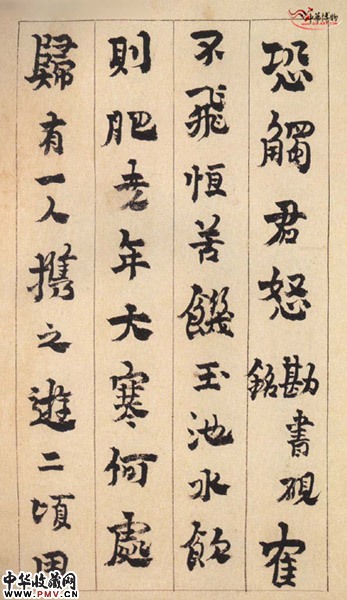 恐觸君怒勘書硯銘隺
不飛恒苦饑玉池水飲
則肥堯年大寒何處
歸有一人攜之遊二頃田
中华博物
中华收藏网
www.PMV.CN